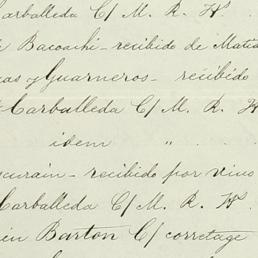 Carballeda C/ M. R. Hs.
Bacoachi - recibido de Matia
as y Guarneros - recibido
Carballeda C/ M. R. H
idem " .
curain - recibido por vino
Carballeda C/ M. R. Hs.
en Barton C/ corretage